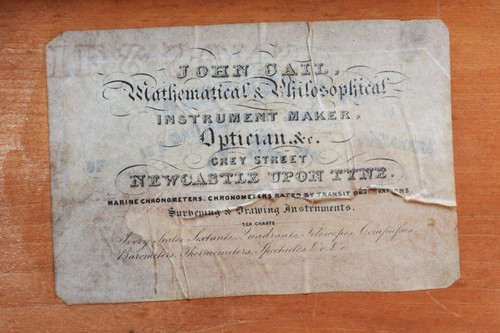 JOHN CAIL,
Mathematical & Philosophical
INSTRUMENT MAKER,
Optician, &c.
GREY STREET
NEWCASTLE UPON TYNE.
MARINE CHRONOMETERS, CHRONOMETERS RATED BY TRANSIT OBSERVATIONS
Surveying & Drawing Instruments.
SEA CHARTS
Ivory Scales, Sextants, Quadrants, Telescopes, Compasses,
Barometers, Thermometers, Spectacles &c. &c.